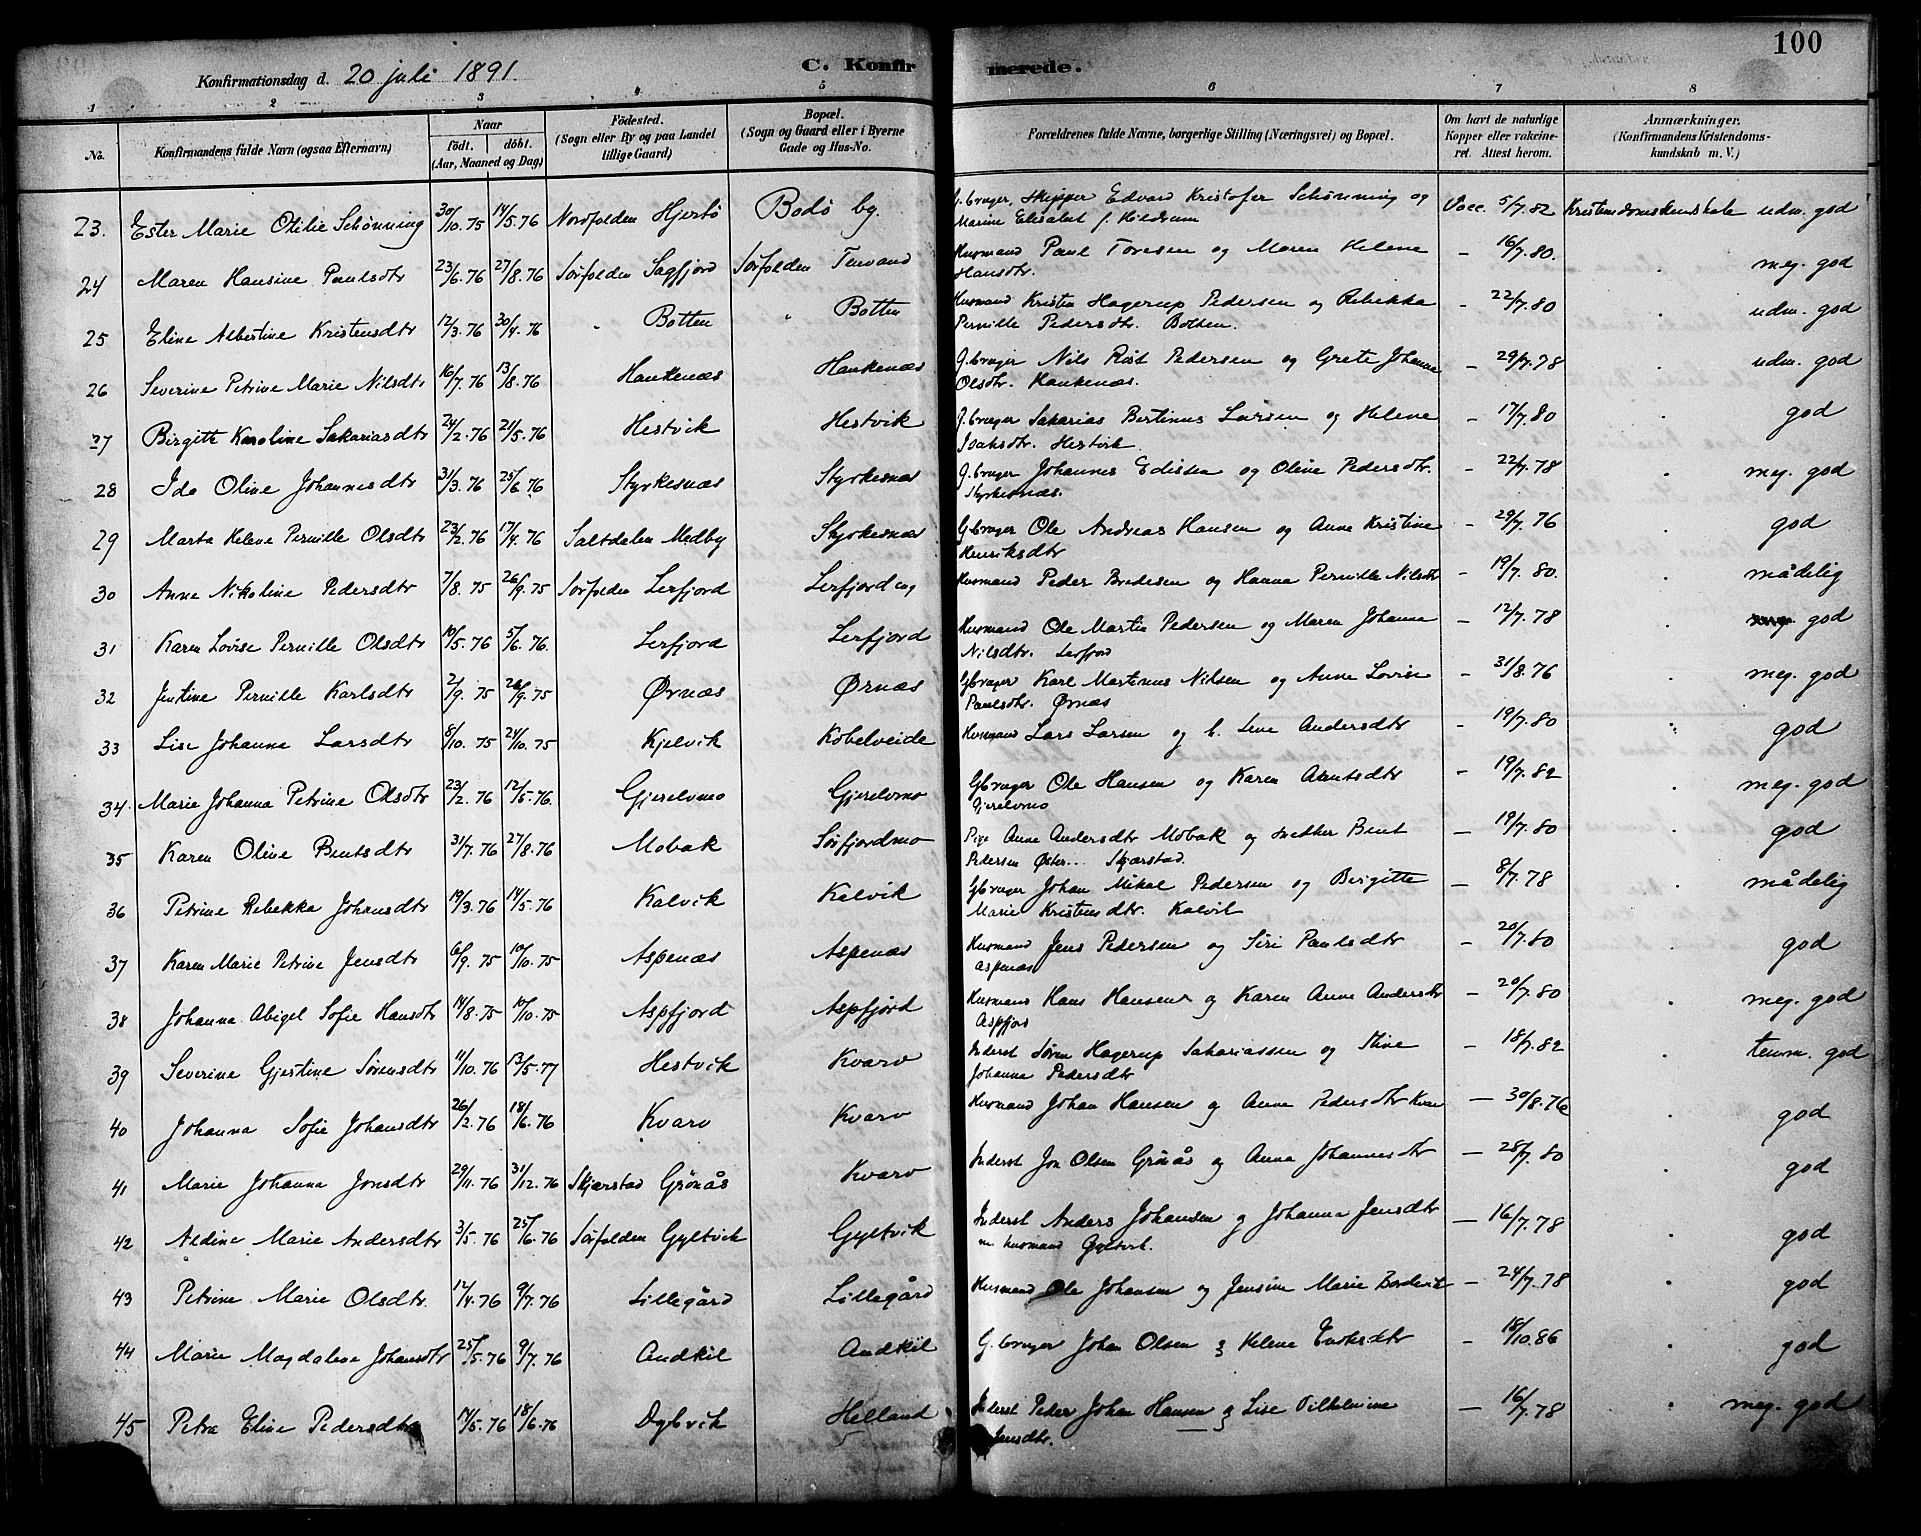 100
Konfirmationsdag d. 20 juli 1891 C. Konfirmerede.
1 2 3 4 5 6 7 8
No. Konfirmandens fulde Navn (ogsaa Efternavn) Naar født. døbt. (Aar, Maaned og Dag) Fødested. (Sogn eller By og paa Landet tillige Gaard) Bopæl. (Sogn og Gaard eller i Byerne Gade og Hus-No. Forældrenes fulde Navne, borgerlige Stilling (Næringsvei) og Bopæl. Om havt de naturlige Kopper eller vakcineret. Attest herom. Anmærkninger. (Konfirmandens Kristendomskundskab m. V.)
23. Ester Marie Otilie Schønning 30/10.75 14/5.76 Nordfolden Hjertø Bodø by. G.bruger, Skipper Edvard Kristofer Schønning og Vacc. 5/7.82 Kristendomskundskab udm. god
Marine Elisabet f. Hildrum
24 Maren Hansine Paulsdtr 23/6.76 27/8.76 Sørfolden Sagfjord Sørfolden Husmand Paul Toresen og Maren Helene – 16/7.80. meg. god
Hansdtr.
25 Eline Albertine Kristensdtr 12/3.76 30/4.76 " Botten " Botten Husmand Kristen Hagerup Pedersen og Rebekka – 22/7.80 udm. god
Pernille Pedersdtr. Botten.
26 Severine Petrine Marie Nilsdtr 16/7.76 13/8.76 Hankenæs Hankenæs G.bruger Nils Røst Pedersen og Grete Johanna – 29/7.78 udm. god
Olsdtr. Hankenæs.
27 Birgitte Karoline Sakariasdtr 24/2.76 21/5.76 Hestvik Hestvik G.bruger Sakarias Bertinus Larsen og Helene – 17/7.80 god
Isaksdtr. Hestvik
28 Ida Olive Johannesdtr 31/3.76 25/6.76 Styrkesnæs Styrkesnæs G.bruger Johannes Edissen og Oline Pedersdtr. – 22/7.78 meg. god
Styrkesnæs.
29 Marta Helene Pernille Olsdtr 23/2.76 17/4.76 Saltdalen Medby Styrkesnæs G.bruger Ole Andreas Hansen og Anne Kristine – 29/7.76 god
Henriksdtr
30 Anne Nikoline Pedersdtr 7/8.75 26/9.75 Sørfolden Lerfjord Lerfjord Husmand Peder Bredesen og Hanna Pernille Nilsdtr – 19/7.80. mådelig
31 Karen Lovise Pernille Olsdtr 10/5.76 5/6.76. Lerfjord Lerfjord Husmand Ole Martin Pedersen og Maren Johanna – 12/7.78 god
Nilsdtr. Lerfjord
32 Jentine Pernille Karlsdtr 2/9.75 26/9.75 Ørnæs Ørnæs Gbruger Karl Martinus Nilsen og Anne Lovise – 31/8.76 meg. god
Paulsdtr. Ørnæs
33 Lise Johanna Larsdtr 8/10.75 24/10.75 Kjelvik Kobelveide Husmand Lars Larsen og Lene Andersdtr – 19/7.80 god
34. Marie Johanna Petrine Olsdtr 23/2.76 12/5.76. Gjerelvmo Gjerelvmo Gbruger Ole Hansen og Karen Arntsdtr – 19/7.82 meg. god
Gjerelvmo
35 Karen Oline Bentsdtr 31/7.76 27/8.76 Mobak Sørfjordmo Pige Anne Andersdtr Mobak og Bent – 19/7.80 god
Pedersen Skjærstad.
36 Petrine Rebekka Johansdtr 19/3.76 14/5.76 Kalvik Kalvik Gbruger Johan Mikal Pedersen og Birgitte – 8/7.78 mådelig
Marie Kristensdtr. Kalvik
37 Karen Marie Petrine Jensdtr 6/9.75 10/10.75 Aspenæs Aspenæs Husmand Jens Pedersen og Siri Paulsdtr – 20/7.80 god
Aspenæs
38 Johanna Abigel Sofie Hansdtr 14/8.75 10/10.75 Aspfjord Aspfjord Husmand Hans Hansen og Karen Anne Andersdtr – 20/7.80 meg. god
Aspfjord
39 Severine Gjertine Sørensdtr 11/10.76 13/5.77 Hestvik Kvarv Inderst Søren Hagerup Sakariassen og Stine – 18/7.82 temm. god
Johanna Pedersdtr
40 Johanna Sofie Johansdtr 26/2.76 18/6.76 Kvarv Kvarv Husmand Johan Hansen og Anne Pedersdtr Kvarv – 30/8.76 god
41 Marie Johanna Jonsdtr 29/11.76 31/12.76 Skjærstad Grønås Kvarv Inderst Jon Olsen Grönås og Anna Johannesdtr – 28/7.80 god
42 Aldine Marie Andersdtr 3/5.76 25/6.76 Sørfolden Gyltvik Gyltvik Inderst Anders Johansen og Johanna Jensdtr – 16/7.78 god
nu husmand Gyltvik.
43 Petrine Marie Olsdtr. 12/4.76 9/7.76 Lillegård Lillegård Husmand Ole Johansen og Jensine Marie – 24/7.78 god
44 Marie Magdalene Johansdtr 25/5.76 9/7.76 Andkil Andkil G.bruger Johan Olsen og Helene – 18/10.86 god
45 Petra Eline Pedersdtr 17/5.76 18/6.76 Dybvik Helland Inderst Peder Johan Hansen og Lise Vilhelmine – 16/7.78 meg. god
Jensdtr.